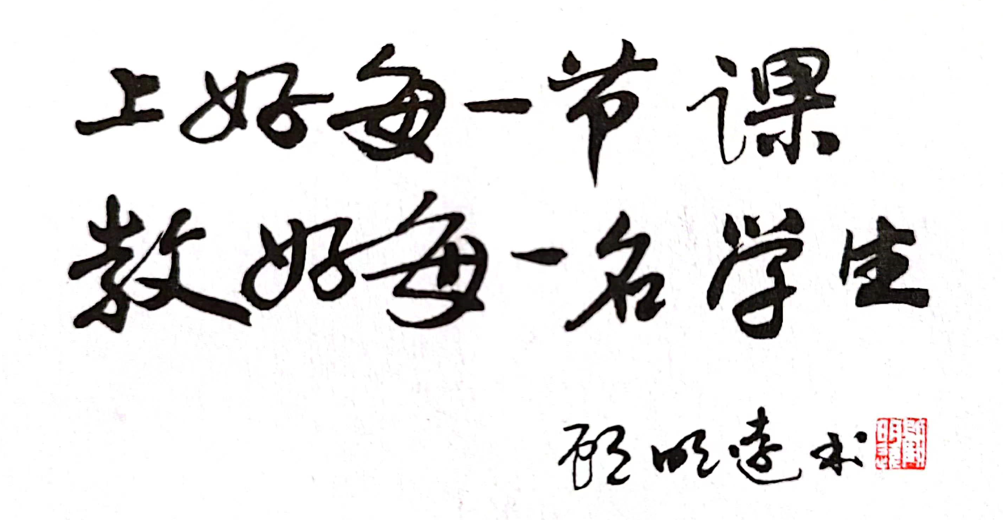 上好每一节课
教好每一名学生
顾明远书